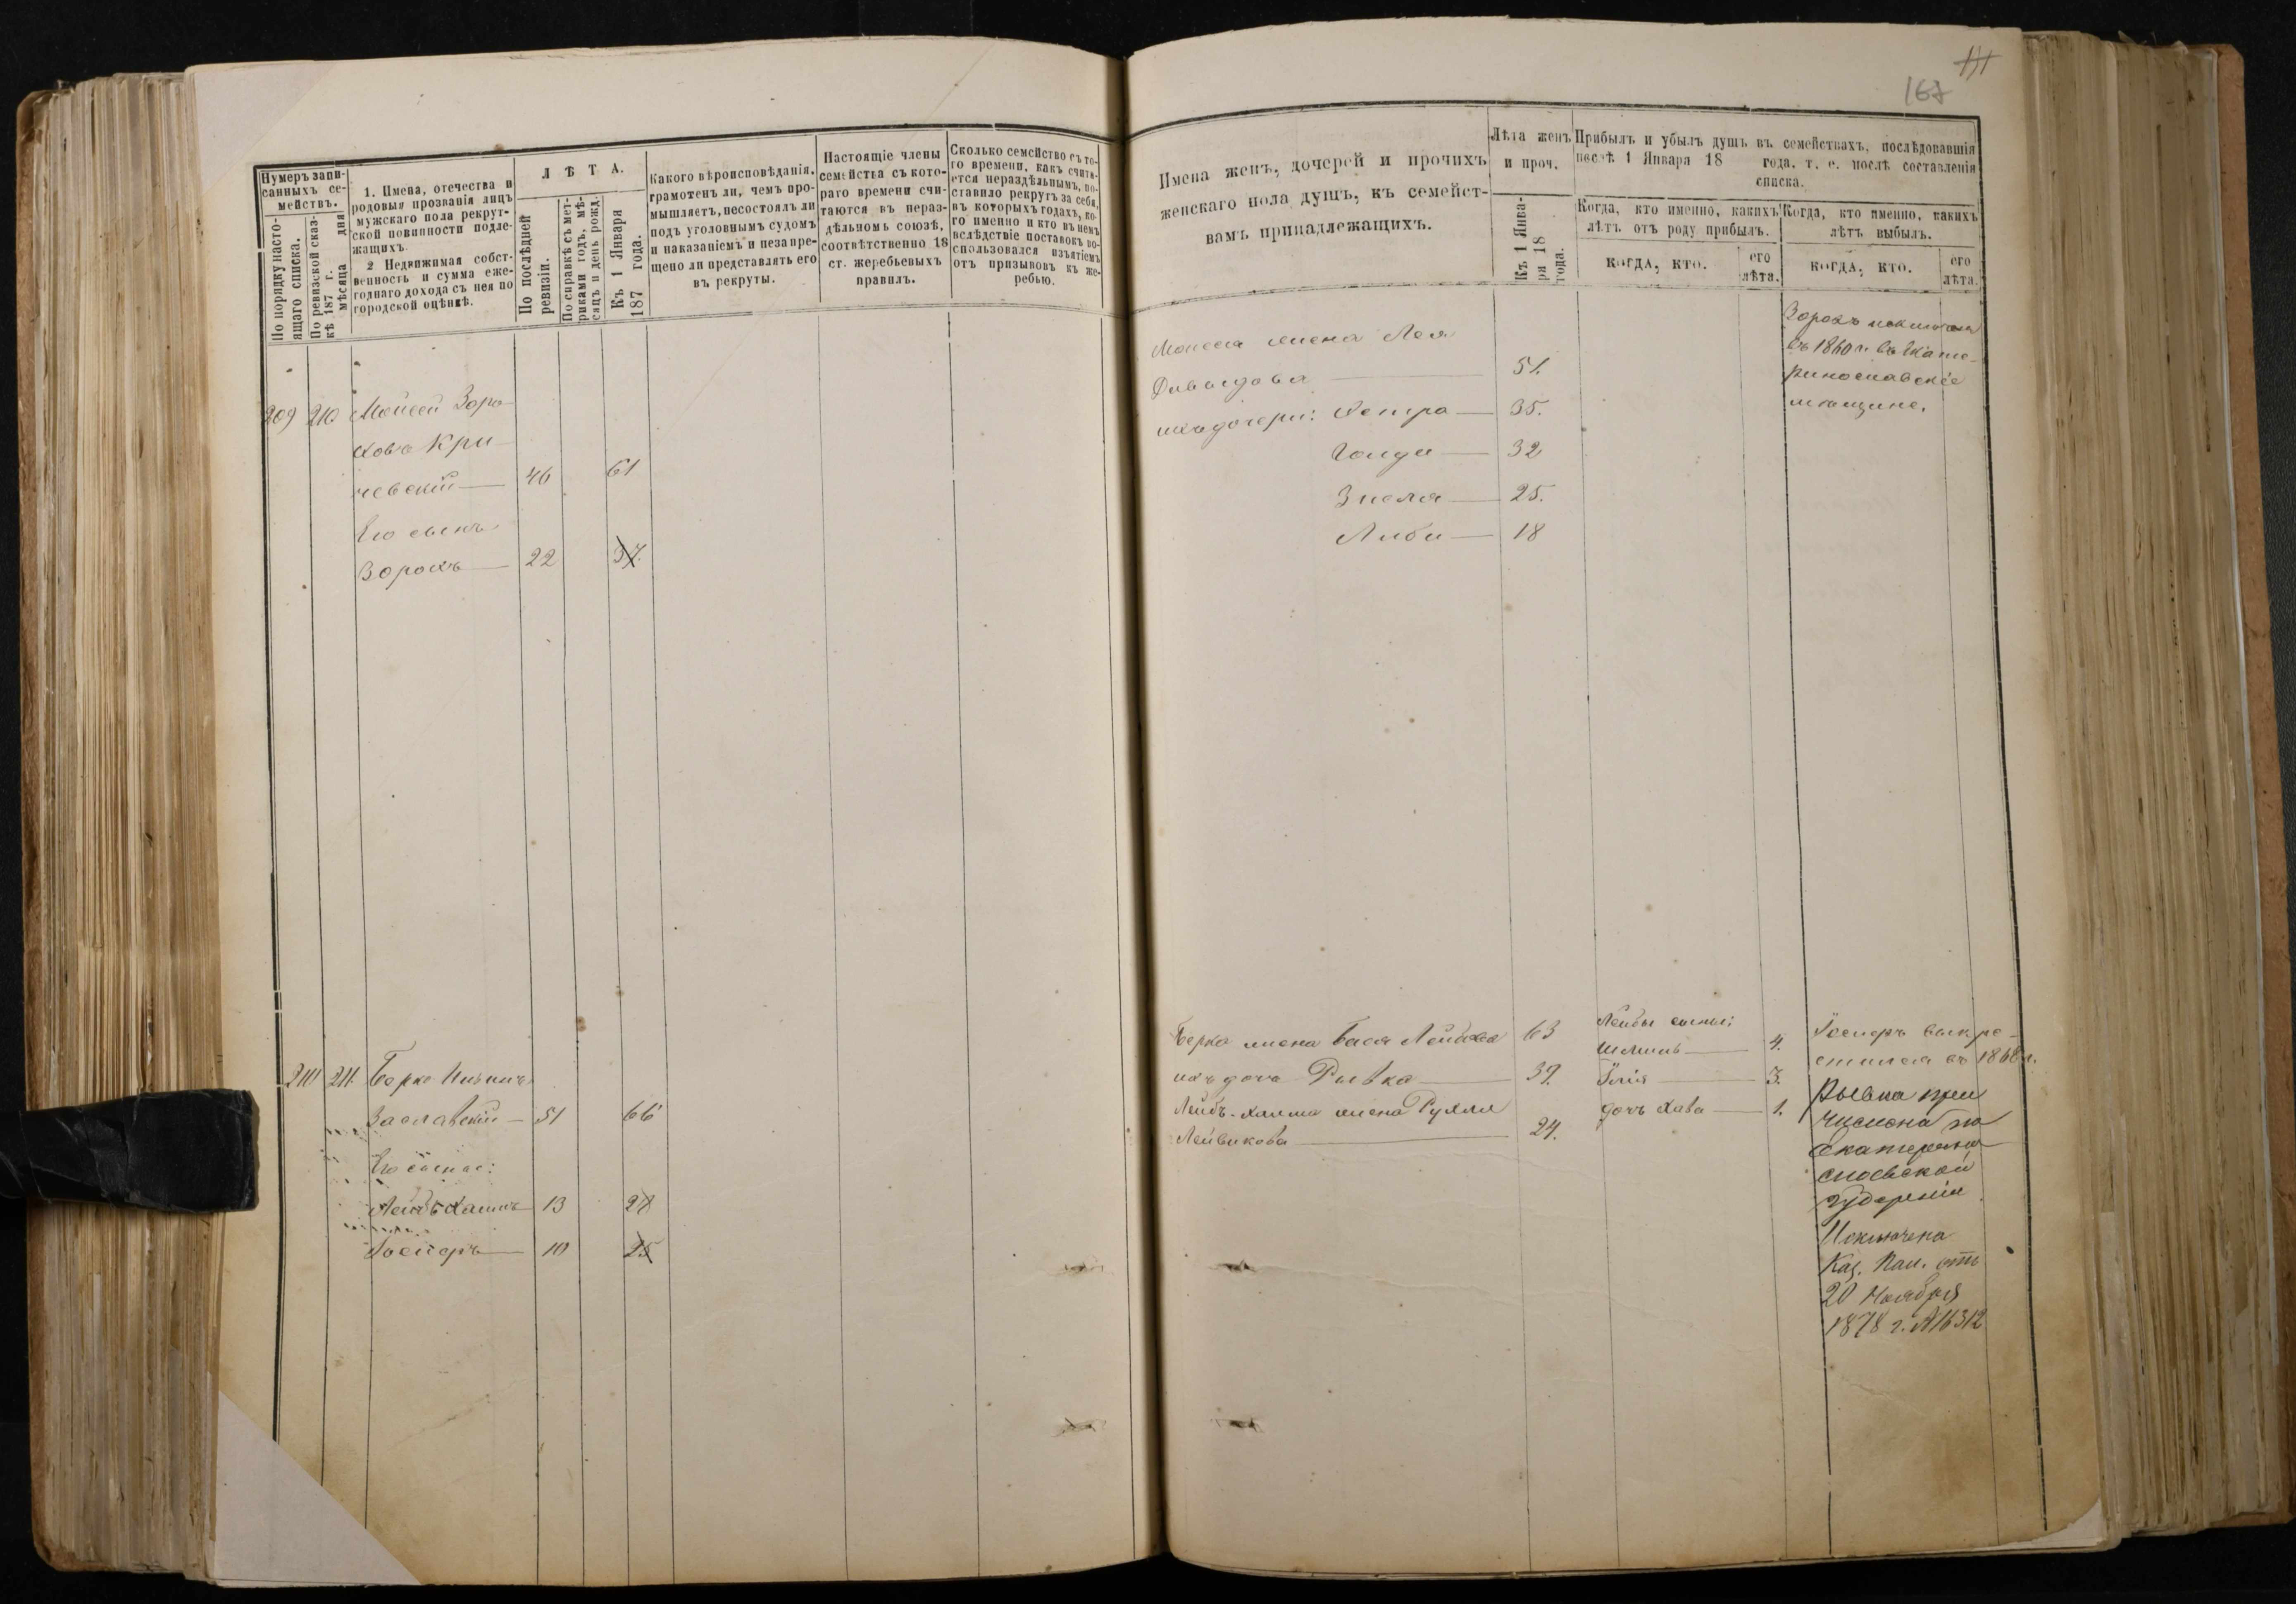 Нумеръ запи-
санныхъ се-
мействъ.
По порядку насто-
ящаго списка.
По ревизской сказ-
кѣ 187 г.
мѣсяца дня
1. Имена, отечества и
родовыя прозванія лицъ
мужскаго пола рекрут-
ской повинности подле-
жащихъ.
2 Недвижимая собст-
венность и сумма еже-
годнаго дохода съ нея по
городской оцѣнкѣ.
Л Ѣ Т А.
По послѣдней
ревизіи.
По справкѣ съ мет-
риками годъ, мѣ-
сяцъ и день рожд.
Къ 1 Января
187 года.
Какого вѣроисповѣданія,
грамотенъ ли, чемъ про-
мышляетъ, несостоялъ ли
подъ уголовнымъ судомъ
и наказаніемъ и неза пре-
щено ли представлять его
въ рекруты.
Настоящіе члены
семейства съ кото-
раго времени счи-
таются въ нераз-
дѣльномъ союзѣ,
соотвѣтственно 18
ст. жеребьевыхъ
правилъ.
Сколько семейство съ то-
го времени, какъ счита-
ется нераздѣльнымъ, по-
ставило рекрутъ за себя,
въ которыхъ годахъ, ко-
го именно и кто въ немъ
вслѣдствіе поставокъ во-
спользовался изъятіемъ
отъ призывовъ къ же-
ребью.
209 210 Мойсей Зора-
ховъ Кри-
чевскій 46 61
Его сынъ
Зорахъ 22 37.
210 211. Берко
Заславскій 51 66
Его сыновья:
Лейбъ Хаимъ 13 28
Іосифъ 10 25
167
Имена женъ, дочерей и прочихъ
женскаго пола душъ, къ семейст-
вамъ принадлежащихъ.
Лѣта женъ
и проч.
Къ 1 Янва-
ря 18
года.
Прибылъ и убылъ душъ въ семействахъ, послѣдовавшія
послѣ 1 Января 18 года, т. е. послѣ составленія
списка.
Когда, кто именно, какихъ
лѣтъ отъ роду прибылъ.
Когда, кто именно, какихъ
лѣтъ выбылъ.
КОГДА, КТО.
его
лѣта.
КОГДА, КТО.
его
лѣта.
Моисея жена Лея
Давыдова 51.
ихъ дочери: 35.
Голда 32
Зисля 25.
Либа 18
Зорахъ исключенъ
въ 1860 г. въ Екате-
ринославскіе
мѣщане.
Берка жена Бася Лейбова 63
ихъ дочь Рывка 39.
Лейбъ-Хаима жена Рухля
Лейвикова 24.
Лейбы сыновья:
4.
Илія 3.
дочь Хава 1.
Іосифъ выкре-
стился въ 1868 г.
Рывка при
числена по
Екатерино
славской
губерніи
Исключена
Каз. Пал. отъ
20 Ноября
1878 г. № 16312